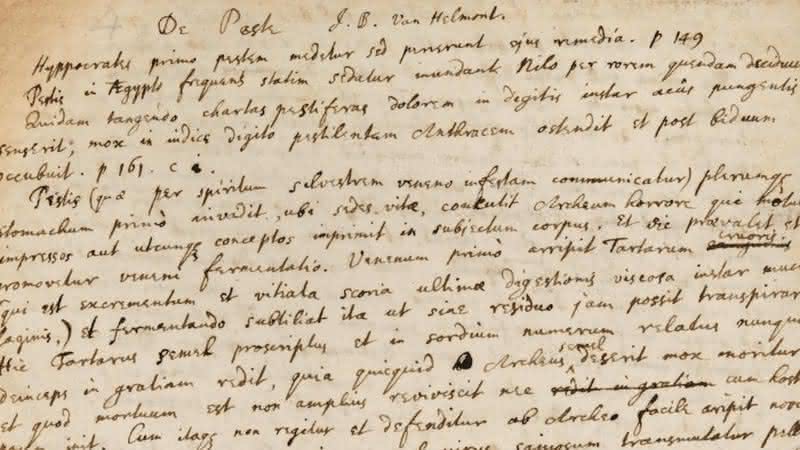 De Peste J. B. Van Helmont.
Hyppocrates primo pestem medetur sed perierunt ejus remedia. p 149
Pestis in Ægypto frequens statim sedatur inundante Nilo per rorem quendam deciduu
Quidam tangendo chartas pestiferas dolorem in digitis instar acûs pungentis
senserit; mox in indice digito pestilentem Anthracem ostendit et post biduum
occubuit. p 161. c i.
Pestis (quæ per spiritum silvestrem veneno infestam communicatur) plerumqꝫ
stomachum primò invadit, ubi sedes vitæ, concutit Archeum horrore qui motus
impressos aut utcunqꝫ conceptos imprimit in subjectum corpus. Et sic prævalet et
promovetur veneni fermentatio. Venenum primò arripit Tartarum cruoris
(qui est excrementum et vitiata scoria ultimæ digestionis viscosa instar muci
laginis,) et fermentando subtiliat ita ut sine residuo jam possit transpirar
Hic Tartarus semel proscriptus et in sordium numerum relatus nunqu
deinceps in gratiam redit, quia quicquid Archeus semel deserit mox moritur
et quod mortuum est non amplius reviviscit nec redit in gratiam cum host
init. Cum itaqꝫ non regitur et defenditur ab Archeo facile aripit
transmutatur